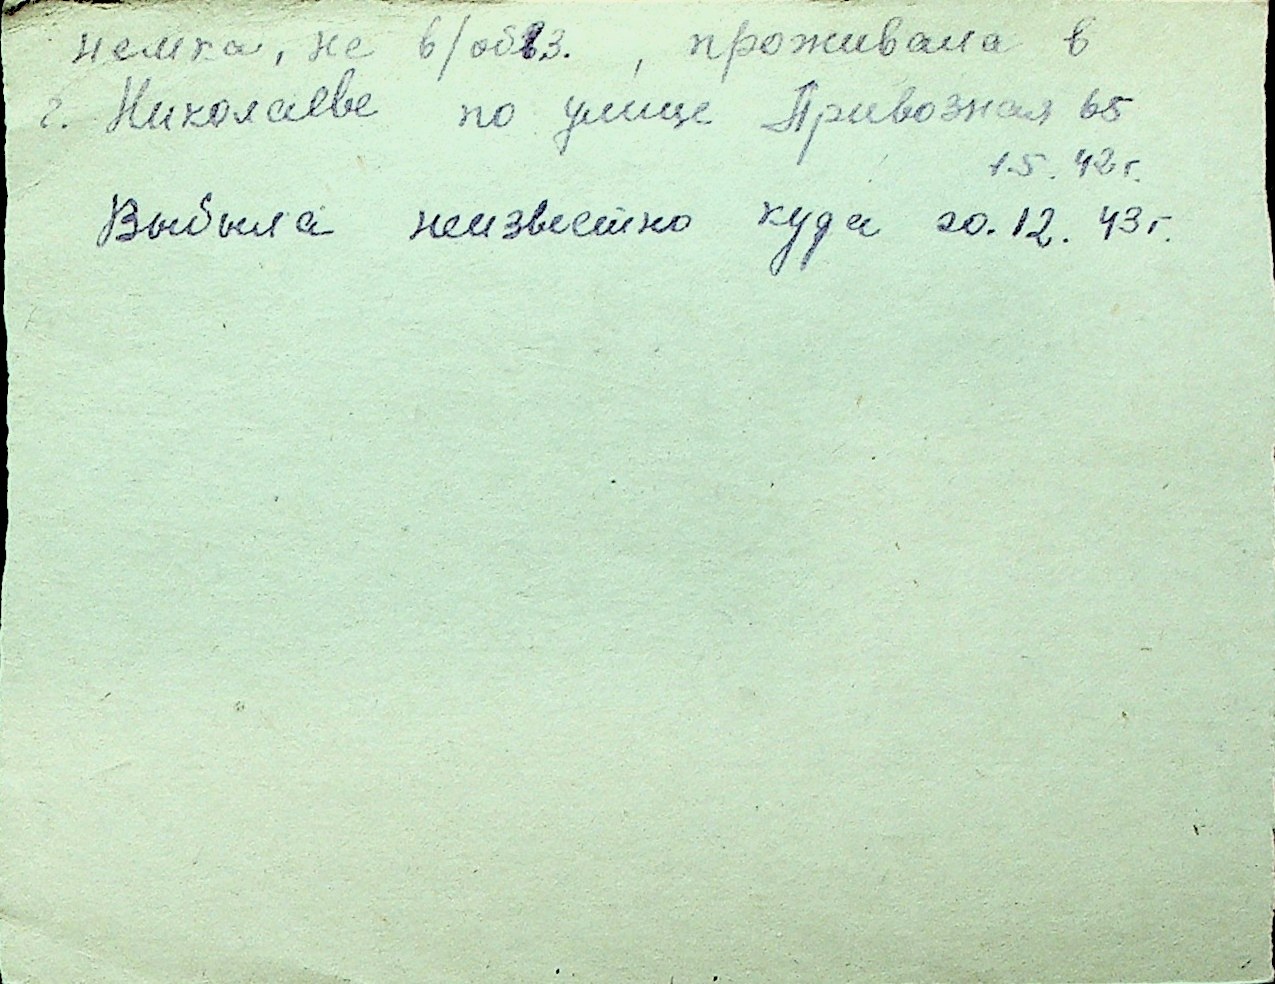 немка, не в/обяз., проживала в
г. Николаеве по улице Привозная 65
1.5.42 г.
Выбыла неизвестно куда 20.12.43 г.